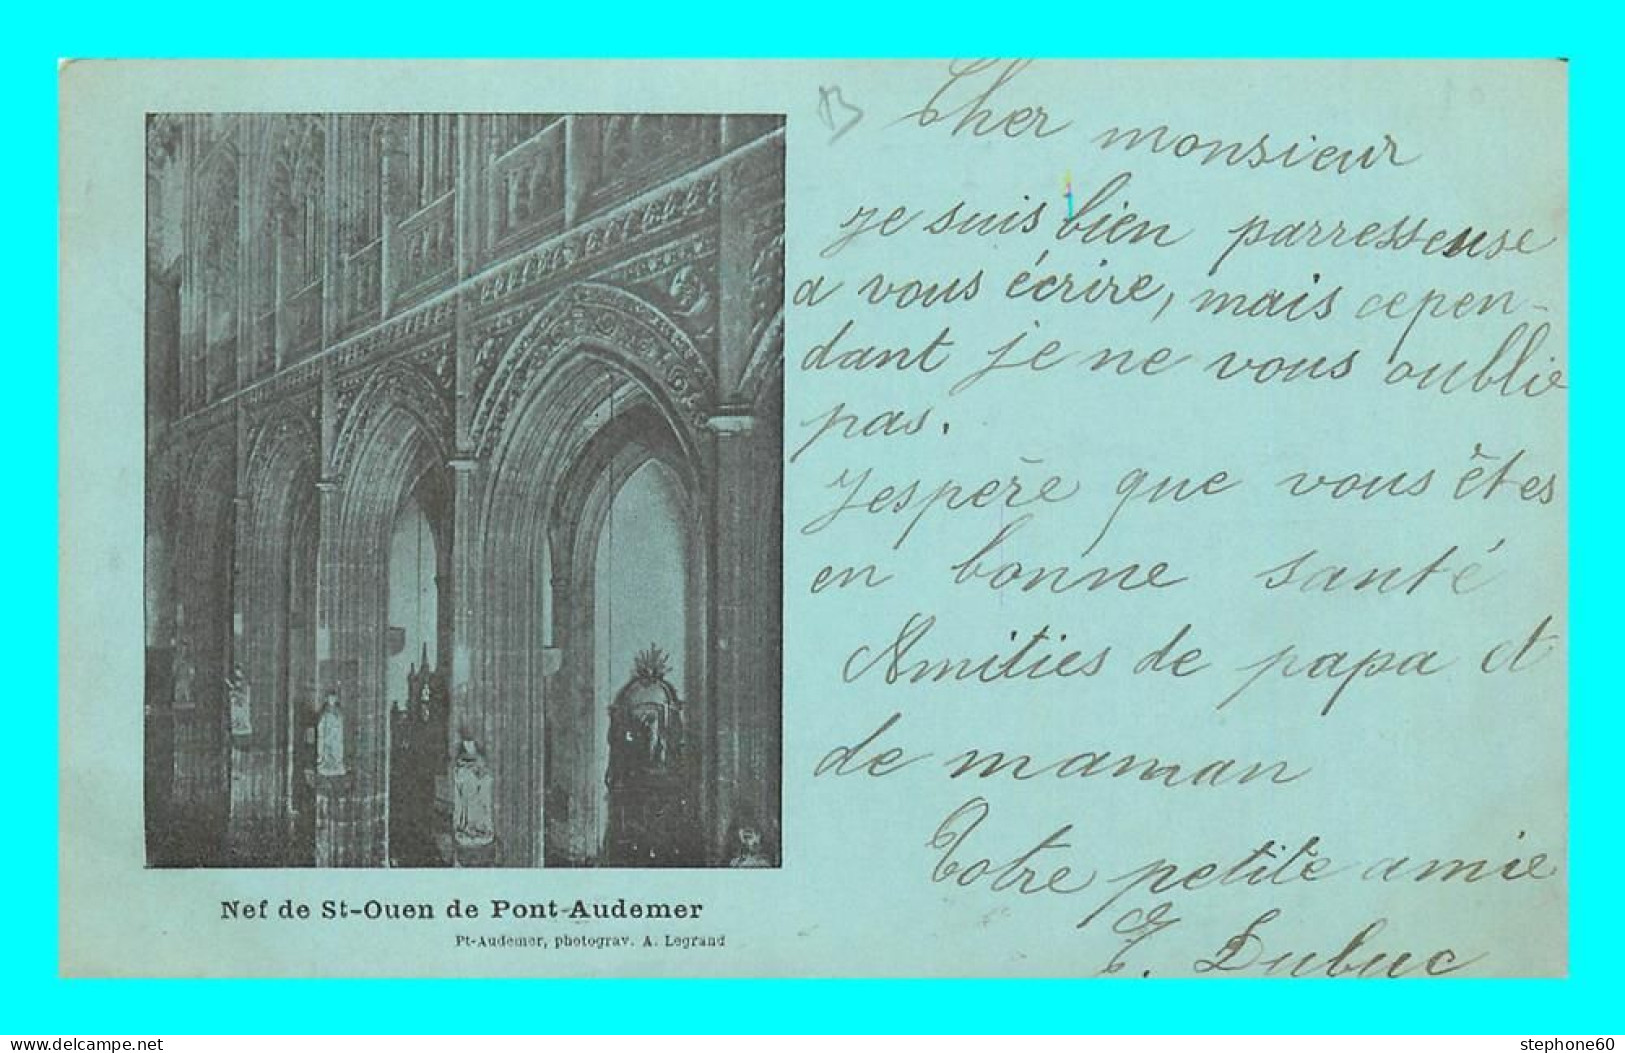 13
Cher monsieur
je suis bien parresseuse
a vous écrire, mais cepen-
dant je ne vous oublie
pas.
J'espère que vous êtes
en bonne santé
Amitiés de papa et
de maman
Votre petite amie
T. Dubuc
Nef de St-Ouen de Pont-Audemer
Pt-Audemer, photograv. A. Legrand
www.delcampe.net
stephone60